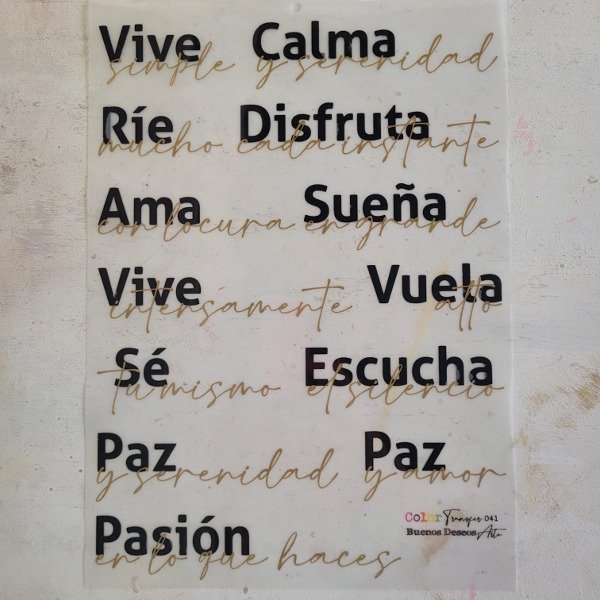 Vive Calma
simple y serenidad
Ríe Disfruta
mucho cada instante
Ama Sueña
con locura en grande
Vive Vuela
intensamente alto
Sé Escucha
tu mismo el silencio
Paz Paz
y serenidad y amor
Pasión
en lo que haces
Color Transfer 041
Buenos Deseos Arte